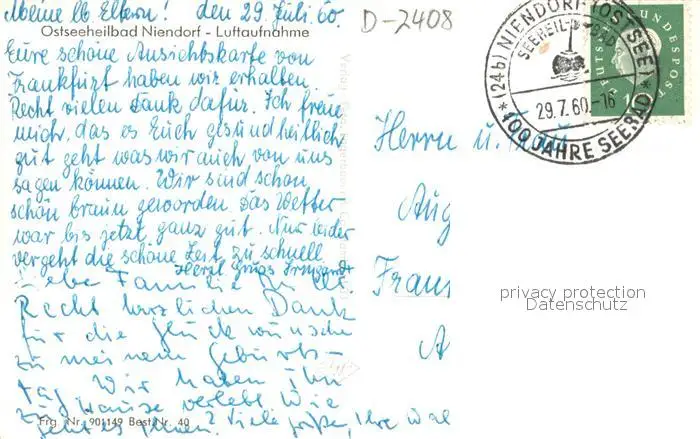 Meine lb Eltern! den 29 Juli 60.
D-2408
Ostseeheilbad Niendorf - Luftaufnahme
Eure schöne Ansichtskarte von
Frankfurt haben wir erhalten.
Recht vielen Dank dafür. Ich freue
mich, das es Euch gesundheitlich
gut geht was wir auch von uns
sagen können. Wir sind schon
schön braun geworden das Wetter
war bis jetzt ganz gut. Nur leider
vergeht die schöne Zeit zu schnell
Herzl Gruß Irmgard
Liebe Familie
Recht herzlichen Dank
für die Glückwünsche
zu meinem Geburts-
tag Wir haben ihn
zu Hause verlebt Wie
geht es Ihnen? Viele Grüße, Ihre
Frg. Nr. 901149 Best. Nr. 40
Verlag
(24b) NIENDORF (OSTSEE)
SEEHEILBAD
29.7.60.-16
* 100 JAHRE SEEBAD *
DEUTSCHE BUNDESPOST
Herrn u. Frau
Aug
Frans
A
privacy protection
Datenschutz